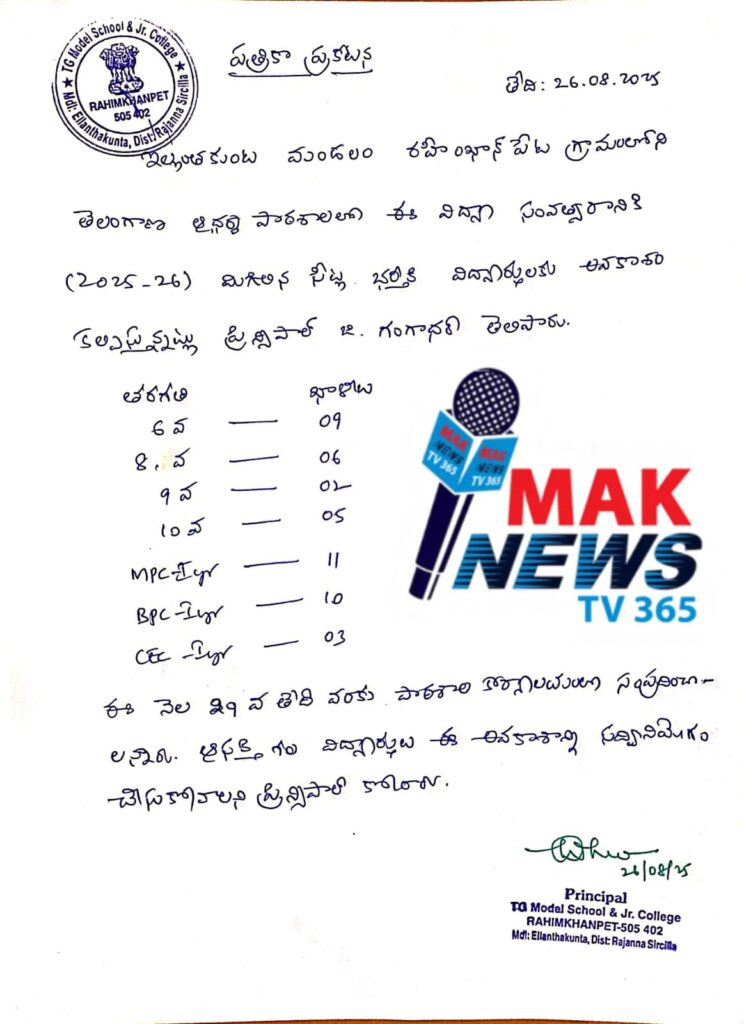 TG Model School & Jr. College
RAHIMKHANPET
505 402
Mdl: Ellanthakunta, Dist: Rajanna Sircilla
పత్రికా ప్రకటన
తేది: 26.08.2025
ఇల్లంతకుంట మండలం రహీంఖాన్ పేట గ్రామంలోని
తెలంగాణ ఆదర్శ పాఠశాలలో ఈ విద్యా సంవత్సరానికి
(2025-26) మిగిలిన సీట్ల భర్తీకి విద్యార్థులకు అవకాశం
కల్పిస్తున్నట్లు ప్రిన్సిపాల్ జి. గంగాధర్ తెలిపారు.
తరగతి ఖాళీలు
6 వ — 09
8. వ — 06
9 వ — 02
10 వ — 05
MPC-I yr — 11
BPC-I yr — 10
CEC-I yr — 03
MAK
NEWS
TV 365
MAK
NEWS
TV 365
MAK
NEWS
TV 365
ఈ నెల వ తేది వరకు పాఠశాల కార్యాలయంలో సంప్రదించా-
లన్నారు. ఆసక్తి గల విద్యార్థులు ఈ అవకాశాన్ని సద్వినియోగం
చేసుకోవాలని ప్రిన్సిపాల్ కోరారు.
26/08/25
Principal
TG Model School & Jr. College
RAHIMKHANPET-505 402
Mdl: Ellanthakunta, Dist: Rajanna Sircilla